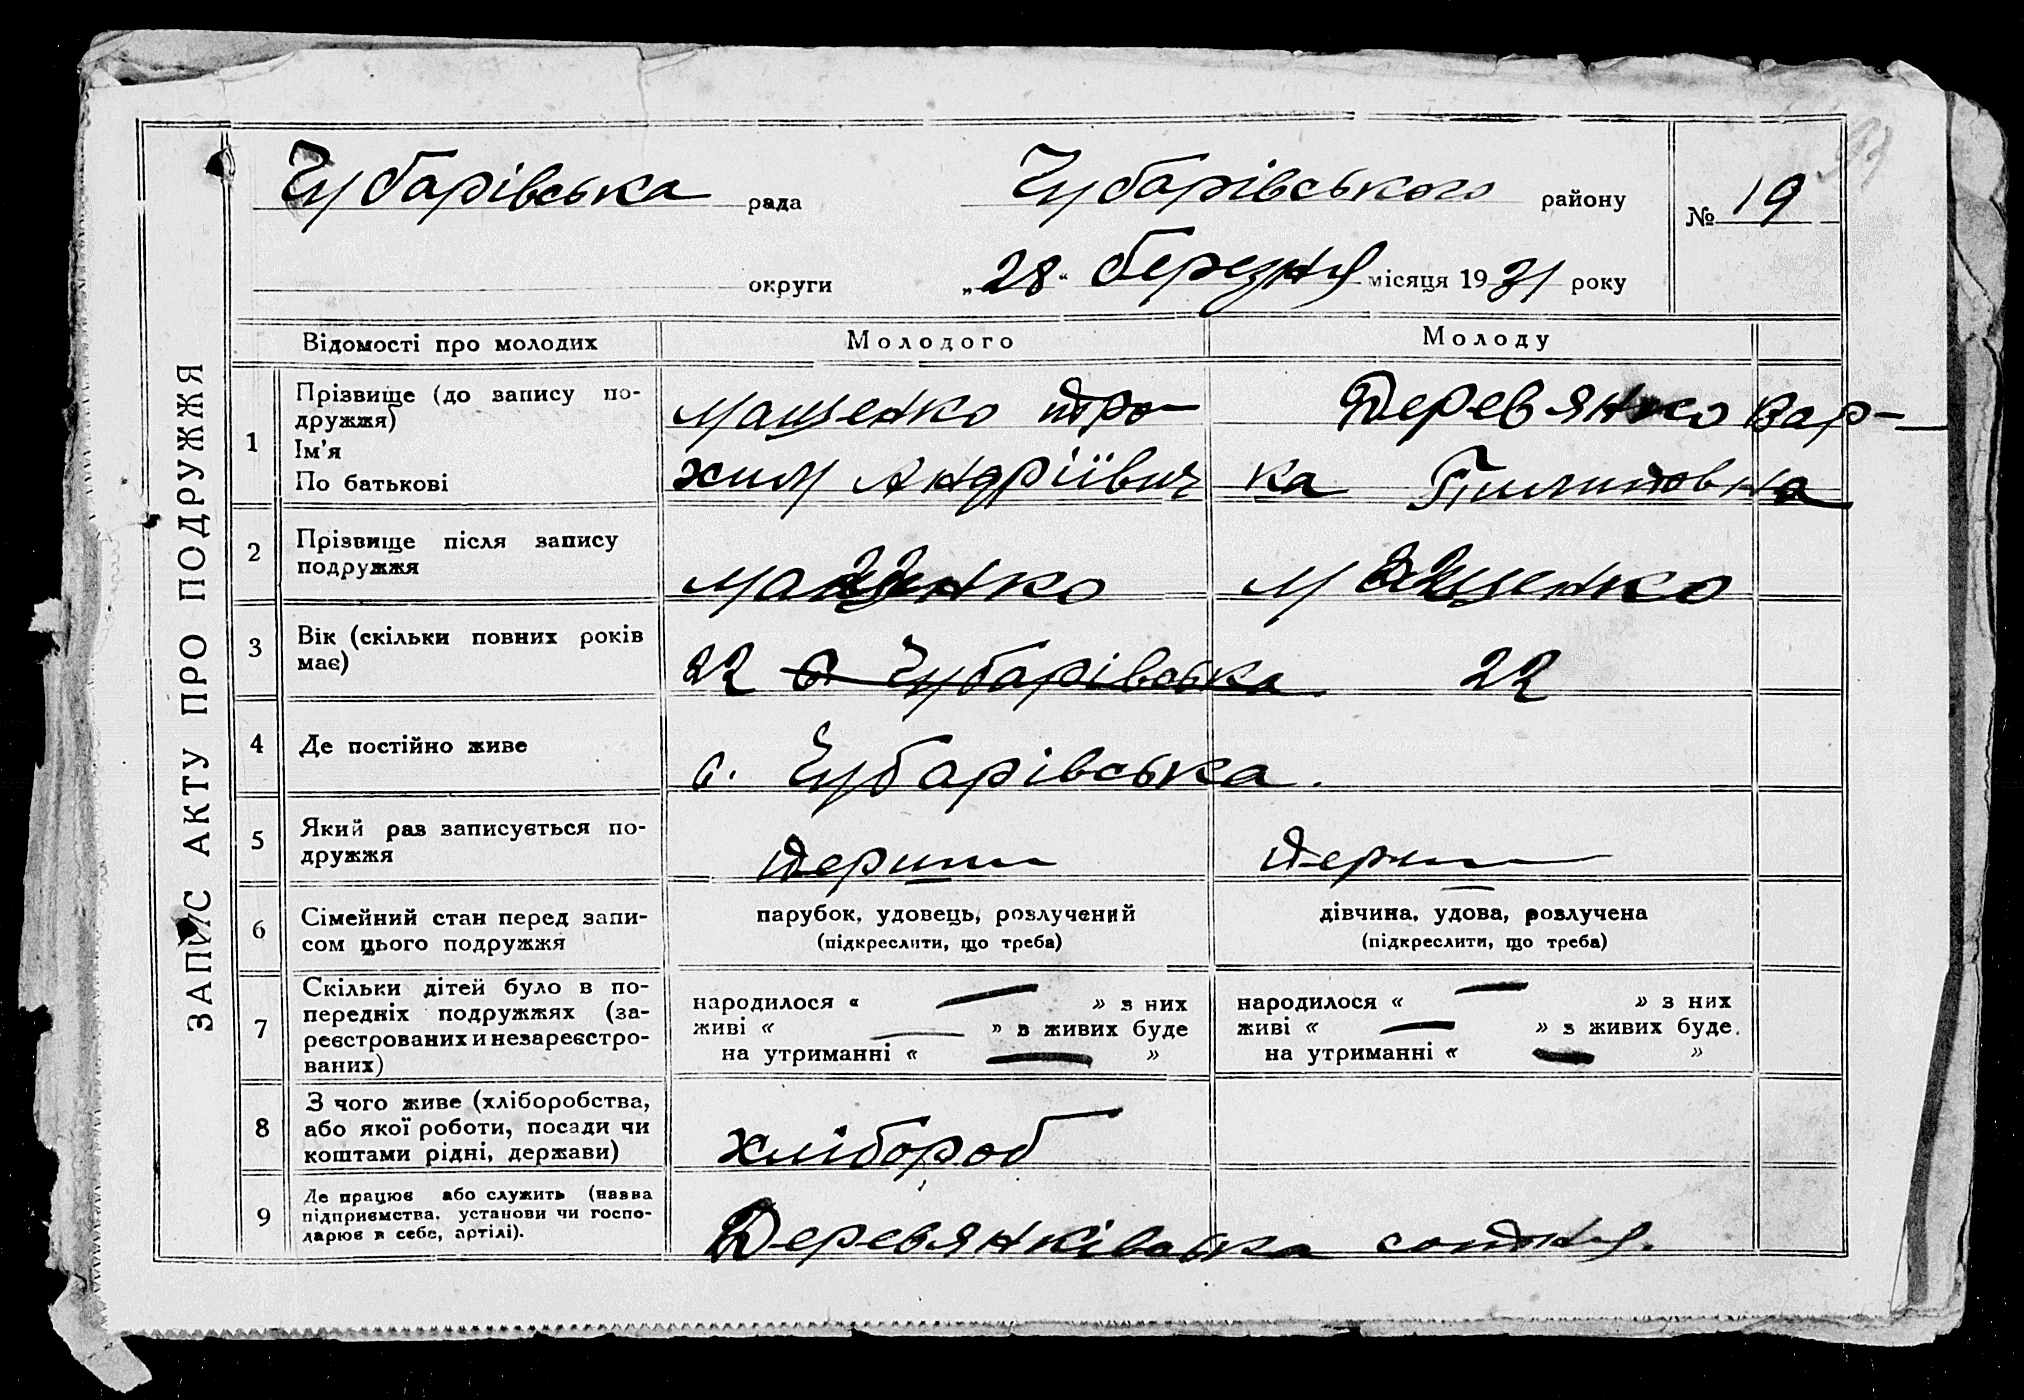 Чубарівська рада Чубарівського району № 19
округи „28“ березня місяця 1931 року
ЗАПИС АКТУ ПРО ПОДРУЖЖЯ
Відомості про молодих Молодого Молоду
1 Прізвище (до запису по-
дружжя)
Ім'я
По батькові
Мащенко Тро-
хим Андріївич
Деревянко Вар-
ка Пилиповна
2 Прізвище після запису
подружжя
Мащенко Мащенко
3 Вік (скільки повних років
має)
22 с. Чубарівська 22
4 Де постійно живе с. Чубарівська.
5 Який раз записується по-
дружжя
перший перший
6 Сімейний стан перед запи-
сом цього подружжя
парубок, удовець, розлучений
(підкреслити, що треба)
дівчина, удова, розлучена
(підкреслити, що треба)
7 Скільки дітей було в по-
передніх подружжях (за-
реєстрованих и незареєстро-
ваних)
народилося « — » з них
живі « — » з живих буде
на утриманні « — »
народилося « — » з них
живі « — » з живих буде.
на утриманні « — »
8 З чого живе (хліборобства,
або якої роботи, посади чи
коштами рідні, держави)
хлібороб
9 Де працює або служить (назва
підприємства, установи чи госпо-
дарює в себе, артілі).
Деревянківська сотня.